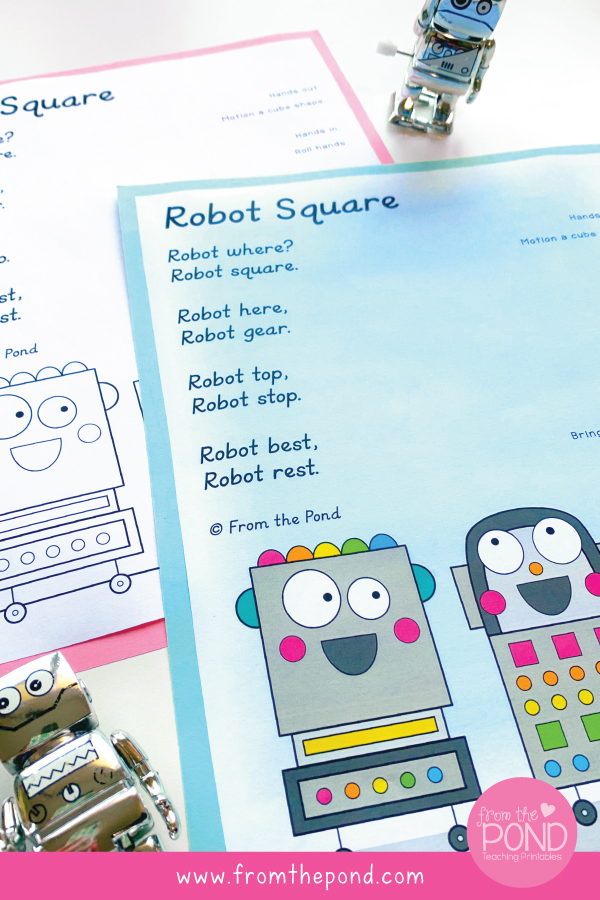 Square
Hands out
Motion a cube shape
Hands in
Roll hands
Pond
Robot Square
Robot where?
Robot square.
Robot here,
Robot gear.
Robot top,
Robot stop.
Robot best,
Robot rest.
© From the Pond
Hands
Motion a cube
from the
POND
Teaching Printables
www.fromthepond.com